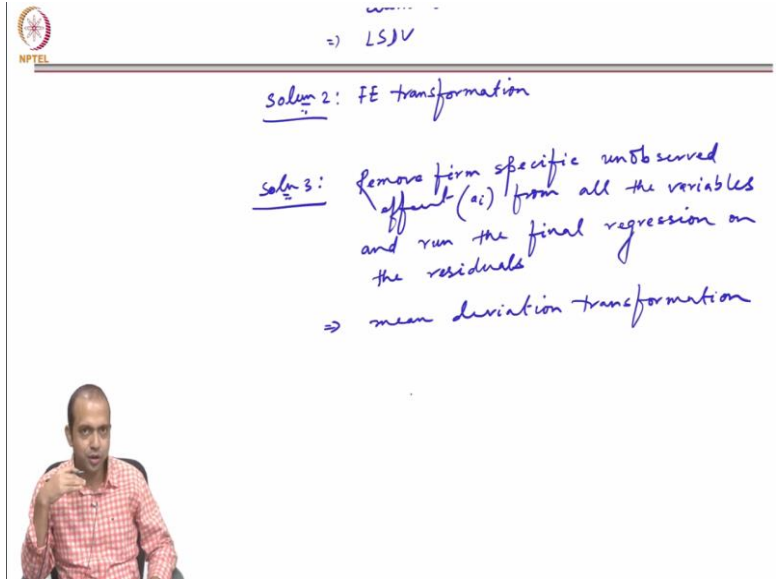 =) LSDV
NPTEL
Solun 2: FE transformation
Soln 3: Remove firm specific unobserved
effect (ai) from all the variables
and run the final regression on
the residuals
=> mean deviation transformation